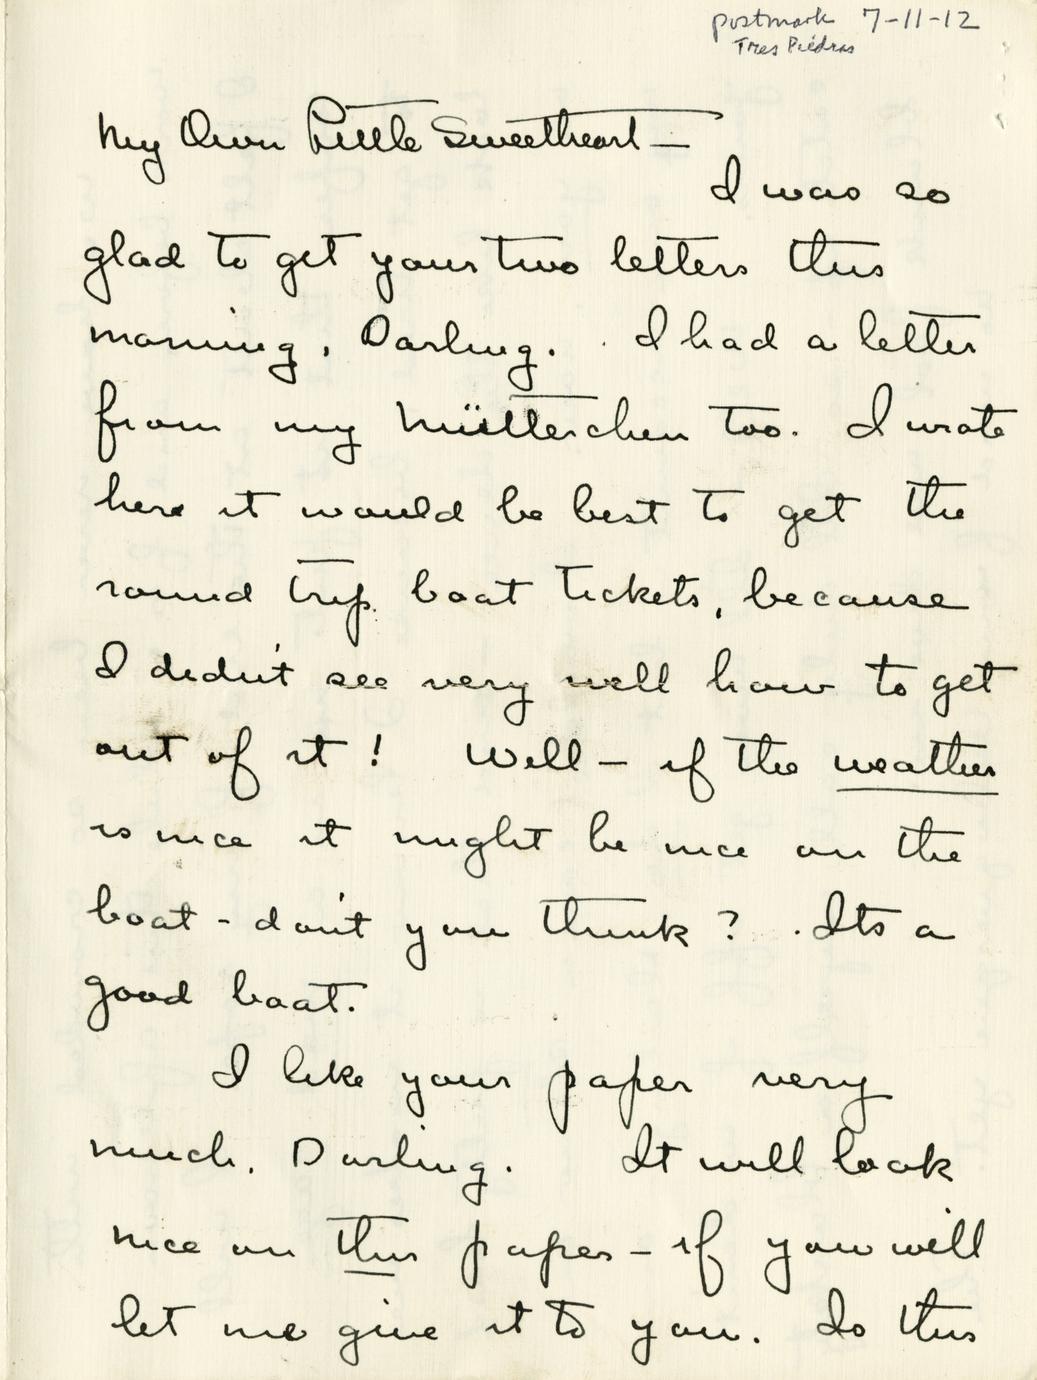 postmark 7-11-12
Tres Piedras
My Own Little Sweetheart —
I was so
glad to get your two letters this
morning, Darling. I had a letter
from my Mütterchen too. I wrote
here it would be best to get the
round trip boat tickets, because
I didn't see very well how to get
out of it! Well — if the weather
is nice it might be nice on the
boat - don't you think? Its a
good boat.
I like your paper very
much, Darling. It will look
nice on this paper — if you will
let me give it to you. Is this